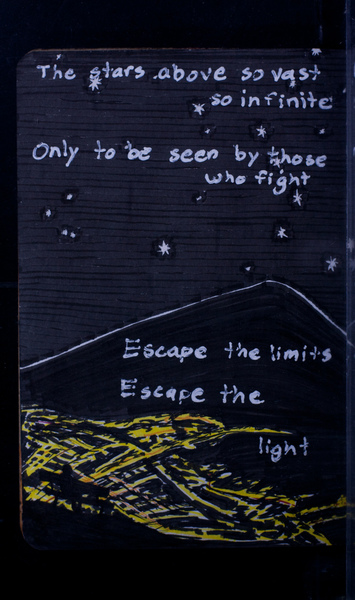 The stars above so vast
so infinite
Only to be seen by those
who fight
Escape the limits
Escape the
light